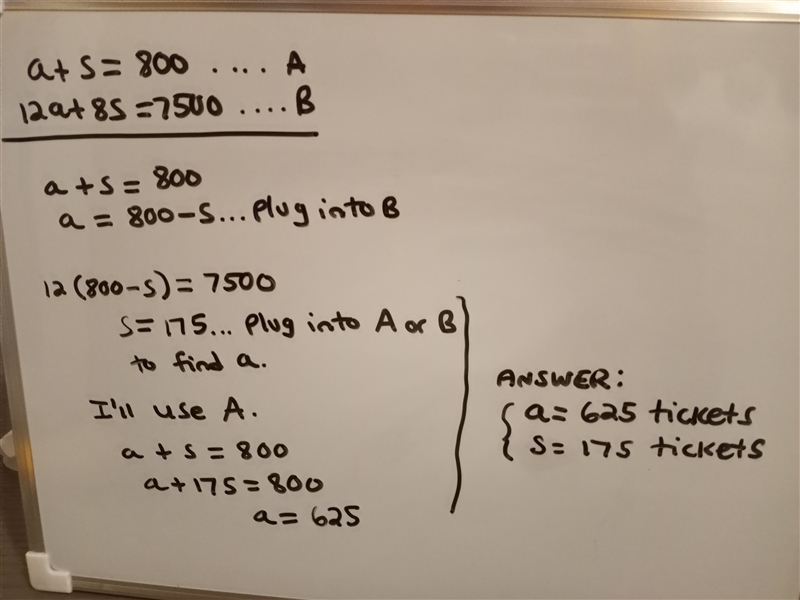 a + s = 800 .... A
12a + 8s = 7500 .... B
a + s = 800
a = 800 - s ... Plug into B
12(800 - s) = 7500
s = 175 ... Plug into A or B
to find a.
I'll use A.
a + s = 800
a + 175 = 800
a = 625
ANSWER:
{ a = 625 tickets
s = 175 tickets